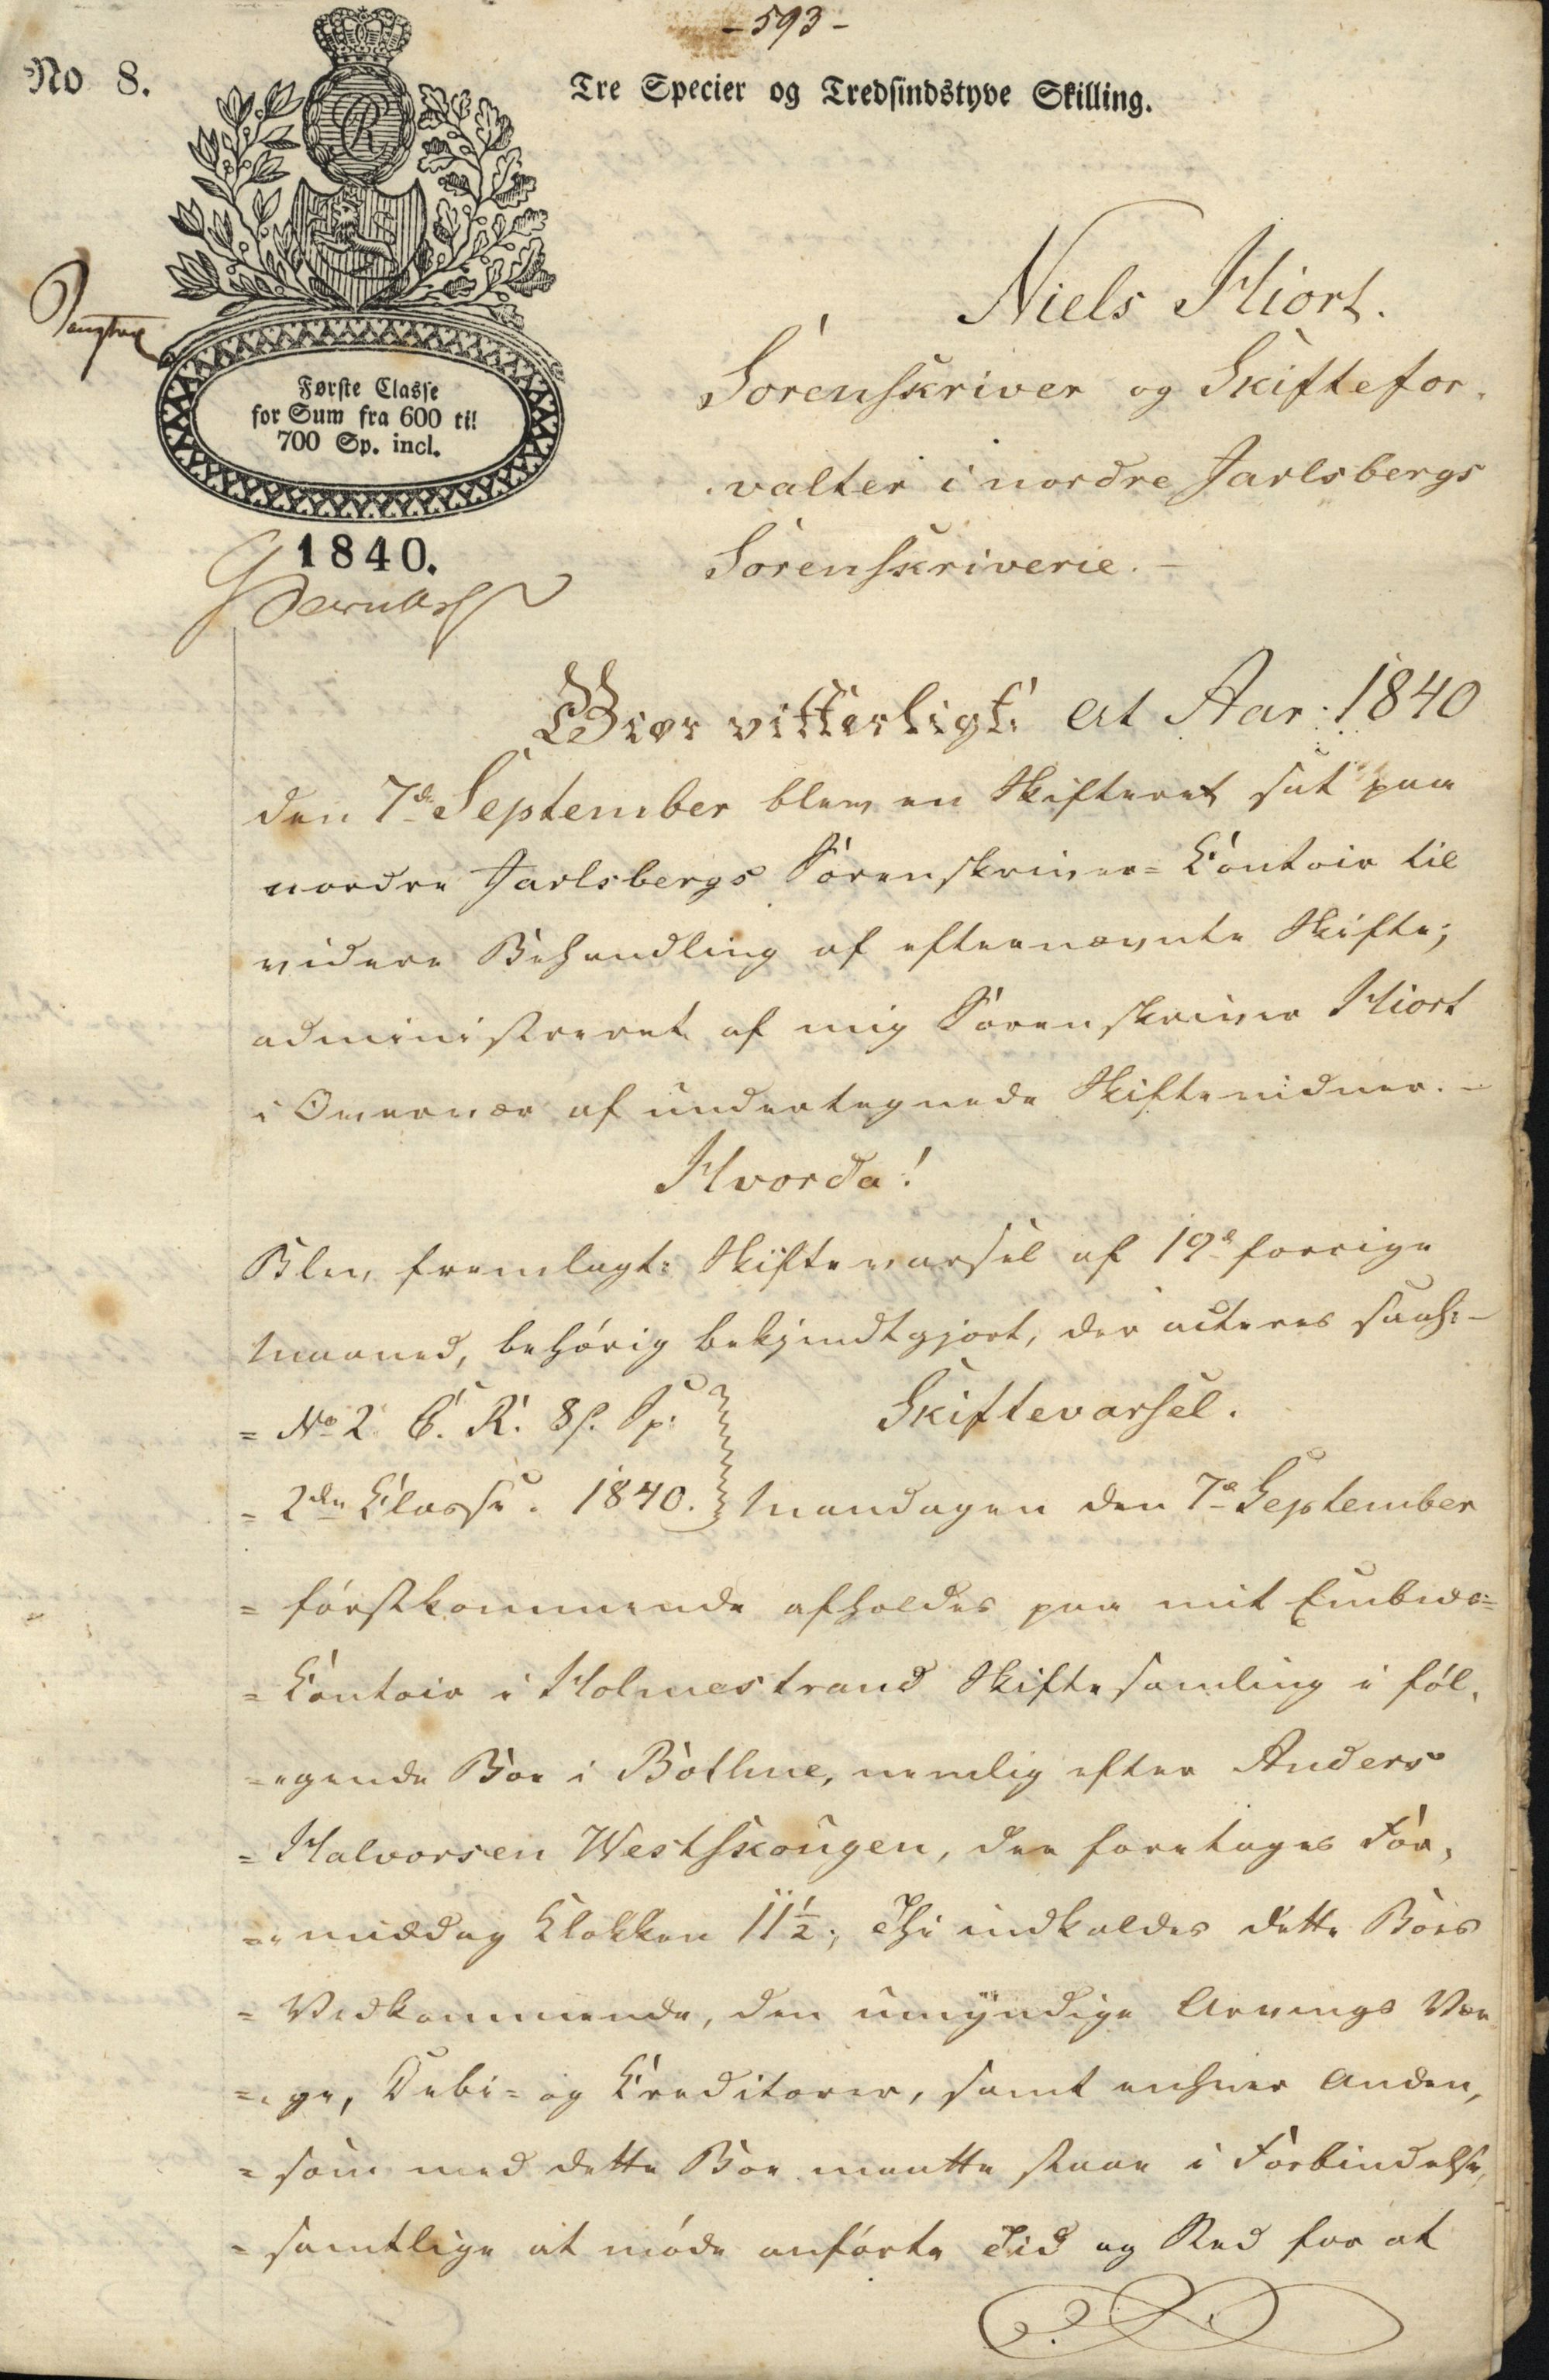 - 593 -
No 8.
Tre Specier og Tredsindstyve Skilling.
Første Classe
for Sum fra 600 til
700 Sp. incl.
1840.
Niels Hiort.
Sorenskriver og Skiftefor,
,valter i nordre Jarlsbergs
Sorenskriverie. -
Giør vitterligt: at Aar 1840
den 7de September blev en Skifteret sat paa
nordre Jarlsbergs Sorenskriver= Contoir til
videre Behandling af efternævnte Skifte;
administreret af mig Sorenskriver Hiort
i Overvær af undertegnede Skiftevidner. -
Hvorda!
Blev fremlagt: Skiftevarsel af 19de forrige
Maaned, behörig bekjendtgjort, der acteres saah: -
= No 2. C. R. 8 s. Sp: Skiftevarsel.
= 2den Classe. 1840. Mandagen den 7de September
= förstkommende afholdes paa mit Embeds=
= Contoir i Holmestrand Skiftesamling i föl,
=,gende Boe i Bothne, nemlig efter Anders
= Halvorsen Westskougen, der foretages For,
=,middag Klokken 11½; Thi indkaldes dette Boes
= Vedkommende, den umyndige Arvings Vær
=,ge, Debi= og Creditorer, samt enhver Anden,
= som med dette Boe maatte staae i Forbindelse,
= samtlige at möde anförte Tid og Sted for at